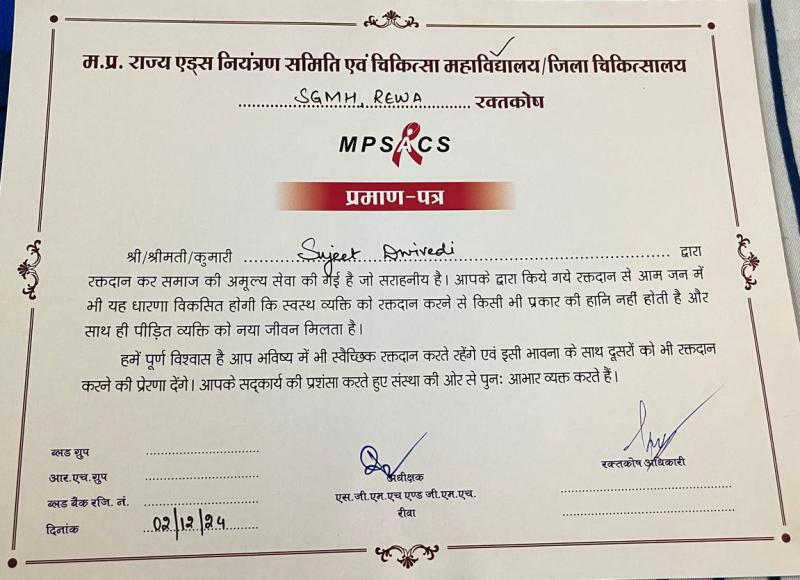 म.प्र. राज्य एड्स नियंत्रण समिति एवं चिकित्सा महाविद्यालय/जिला चिकित्सालय
SGMH, REWA रक्तकोष
MPSACS
प्रमाण-पत्र
श्री/श्रीमती/कुमारी Sujeet Dwivedi द्वारा
रक्तदान कर समाज की अमूल्य सेवा की गई है जो सराहनीय है। आपके द्वारा किये गये रक्तदान से आम जन में
भी यह धारणा विकसित होगी कि स्वस्थ व्यक्ति को रक्तदान करने से किसी भी प्रकार की हानि नहीं होती है और
साथ ही पीड़ित व्यक्ति को नया जीवन मिलता है।
हमें पूर्ण विश्वास है आप भविष्य में भी स्वैच्छिक रक्तदान करते रहेंगे एवं इसी भावना के साथ दूसरों को भी रक्तदान
करने की प्रेरणा देंगे। आपके सद्कार्य की प्रशंसा करते हुए संस्था की ओर से पुनः आभार व्यक्त करते हैं।
ब्लड ग्रुप
आर.एच.ग्रुप
ब्लड बैंक रजि. नं.
दिनांक 02/12/24
अधीक्षक
एस.जी.एम.एच एण्ड जी.एम.एच.
रीवा
रक्तकोष अधिकारी